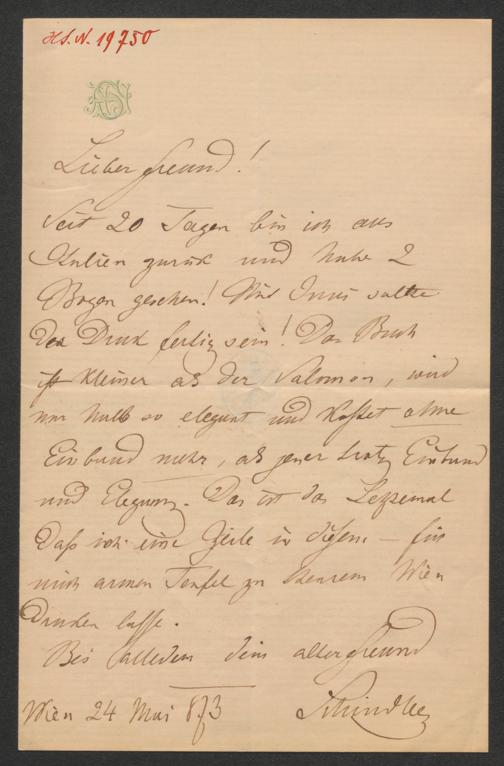 H.S.N. 19750
Lieber Freund!
Seit 20 Tagen bin ich aus
Italien zurück und habe 2
Bogen gesehen! Mit Juni sollte
der Druck fertig sein! Das Buch
ist kleiner als der Salomon, wird
nur halb so elegant und kostet ohne
Einband mehr, als jener trotz Einband
und Eleganz. Das ist das Letztemal
daß ich eine Zeile in diesem – für
mich armen Teufel zu theurem Wien
drucken lasse.
Bei alledem dein alter Freund
Schindler
Wien 24 Mai 873